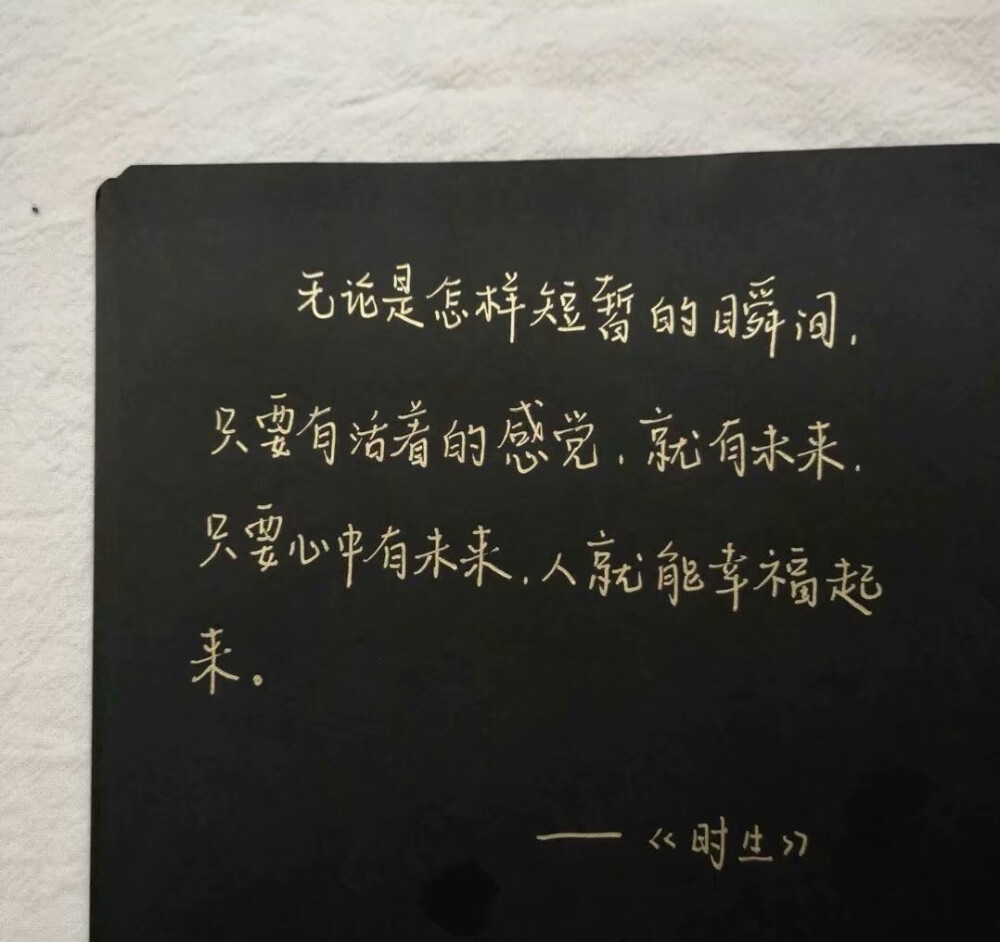 无论是怎样短暂的瞬间，
只要有活着的感觉，就有未来，
只要心中有未来，人就能幸福起
来。
——《时生》